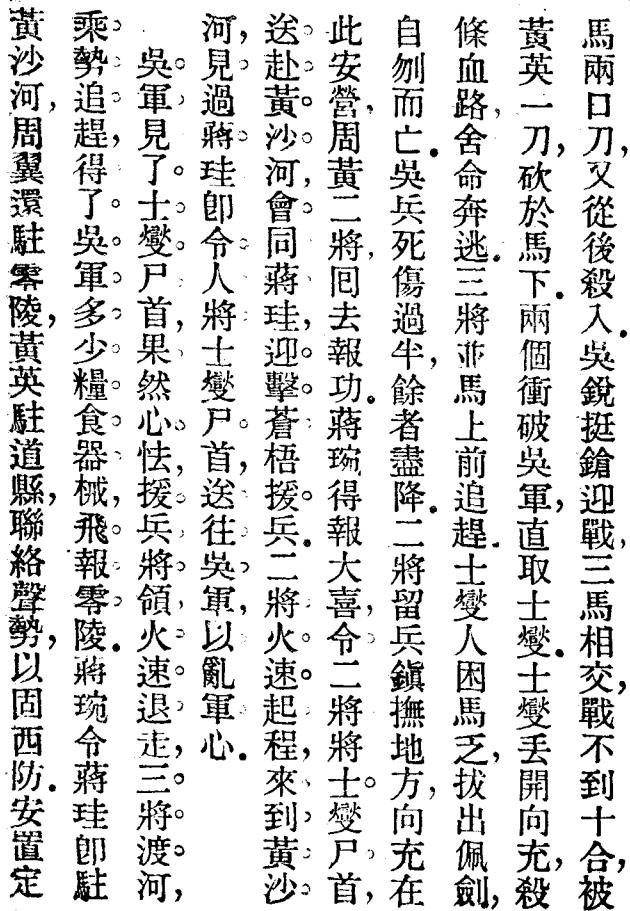 馬兩口刀，又從後殺入．吳銳挺鎗迎戰，三馬相交，戰不到十合，被
黃英一刀，砍於馬下．兩個衝破吳軍，直取士燮．士燮丟開向充，殺
條血路，舍命奔逃．三將並馬上前追趕．士燮人困馬乏，拔出佩劍，
自刎而亡．吳兵死傷過半，餘者盡降．二將留兵鎮撫地方，向充在
此安營，周黃二將，囘去報功．蔣琬得報大喜，令二將將士燮尸首，
送赴黃沙河，會同蔣珪，迎擊蒼梧援兵．二將火速起程，來到黃沙
河，見過蔣珪卽令人將士燮尸首，送往吳軍，以亂軍心．
吳軍見了士燮尸首，果然心怯，援兵將領，火速退走，三將渡河，
乘勢追趕，得了吳軍多少糧食器械，飛報零陵．蔣琬令蔣珪卽駐
黃沙河，周翼還駐零陵，黃英駐道縣，聯絡聲勢，以固西防．安置定